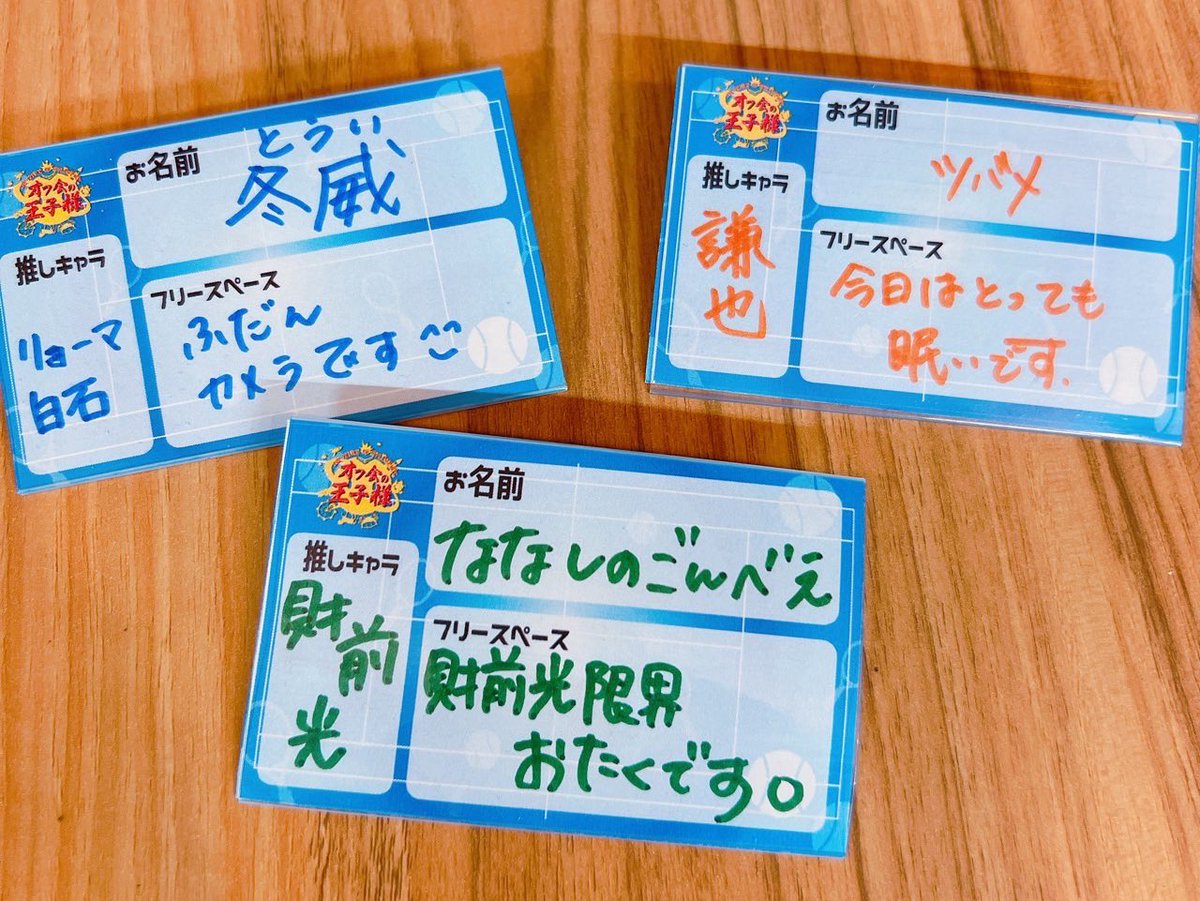 オフ会の
王子様
お名前
とうい
冬威
推しキャラ
リョーマ
白石
フリースペース
ふだん
カメラです
オフ会の
王子様
お名前
ツバメ
推しキャラ
謙
也
フリースペース
今日はとっても
眠いです.
オフ会の
王子様
お名前
ななしのごんべえ
推しキャラ
財
前
光
フリースペース
財前光限界
おたくです。